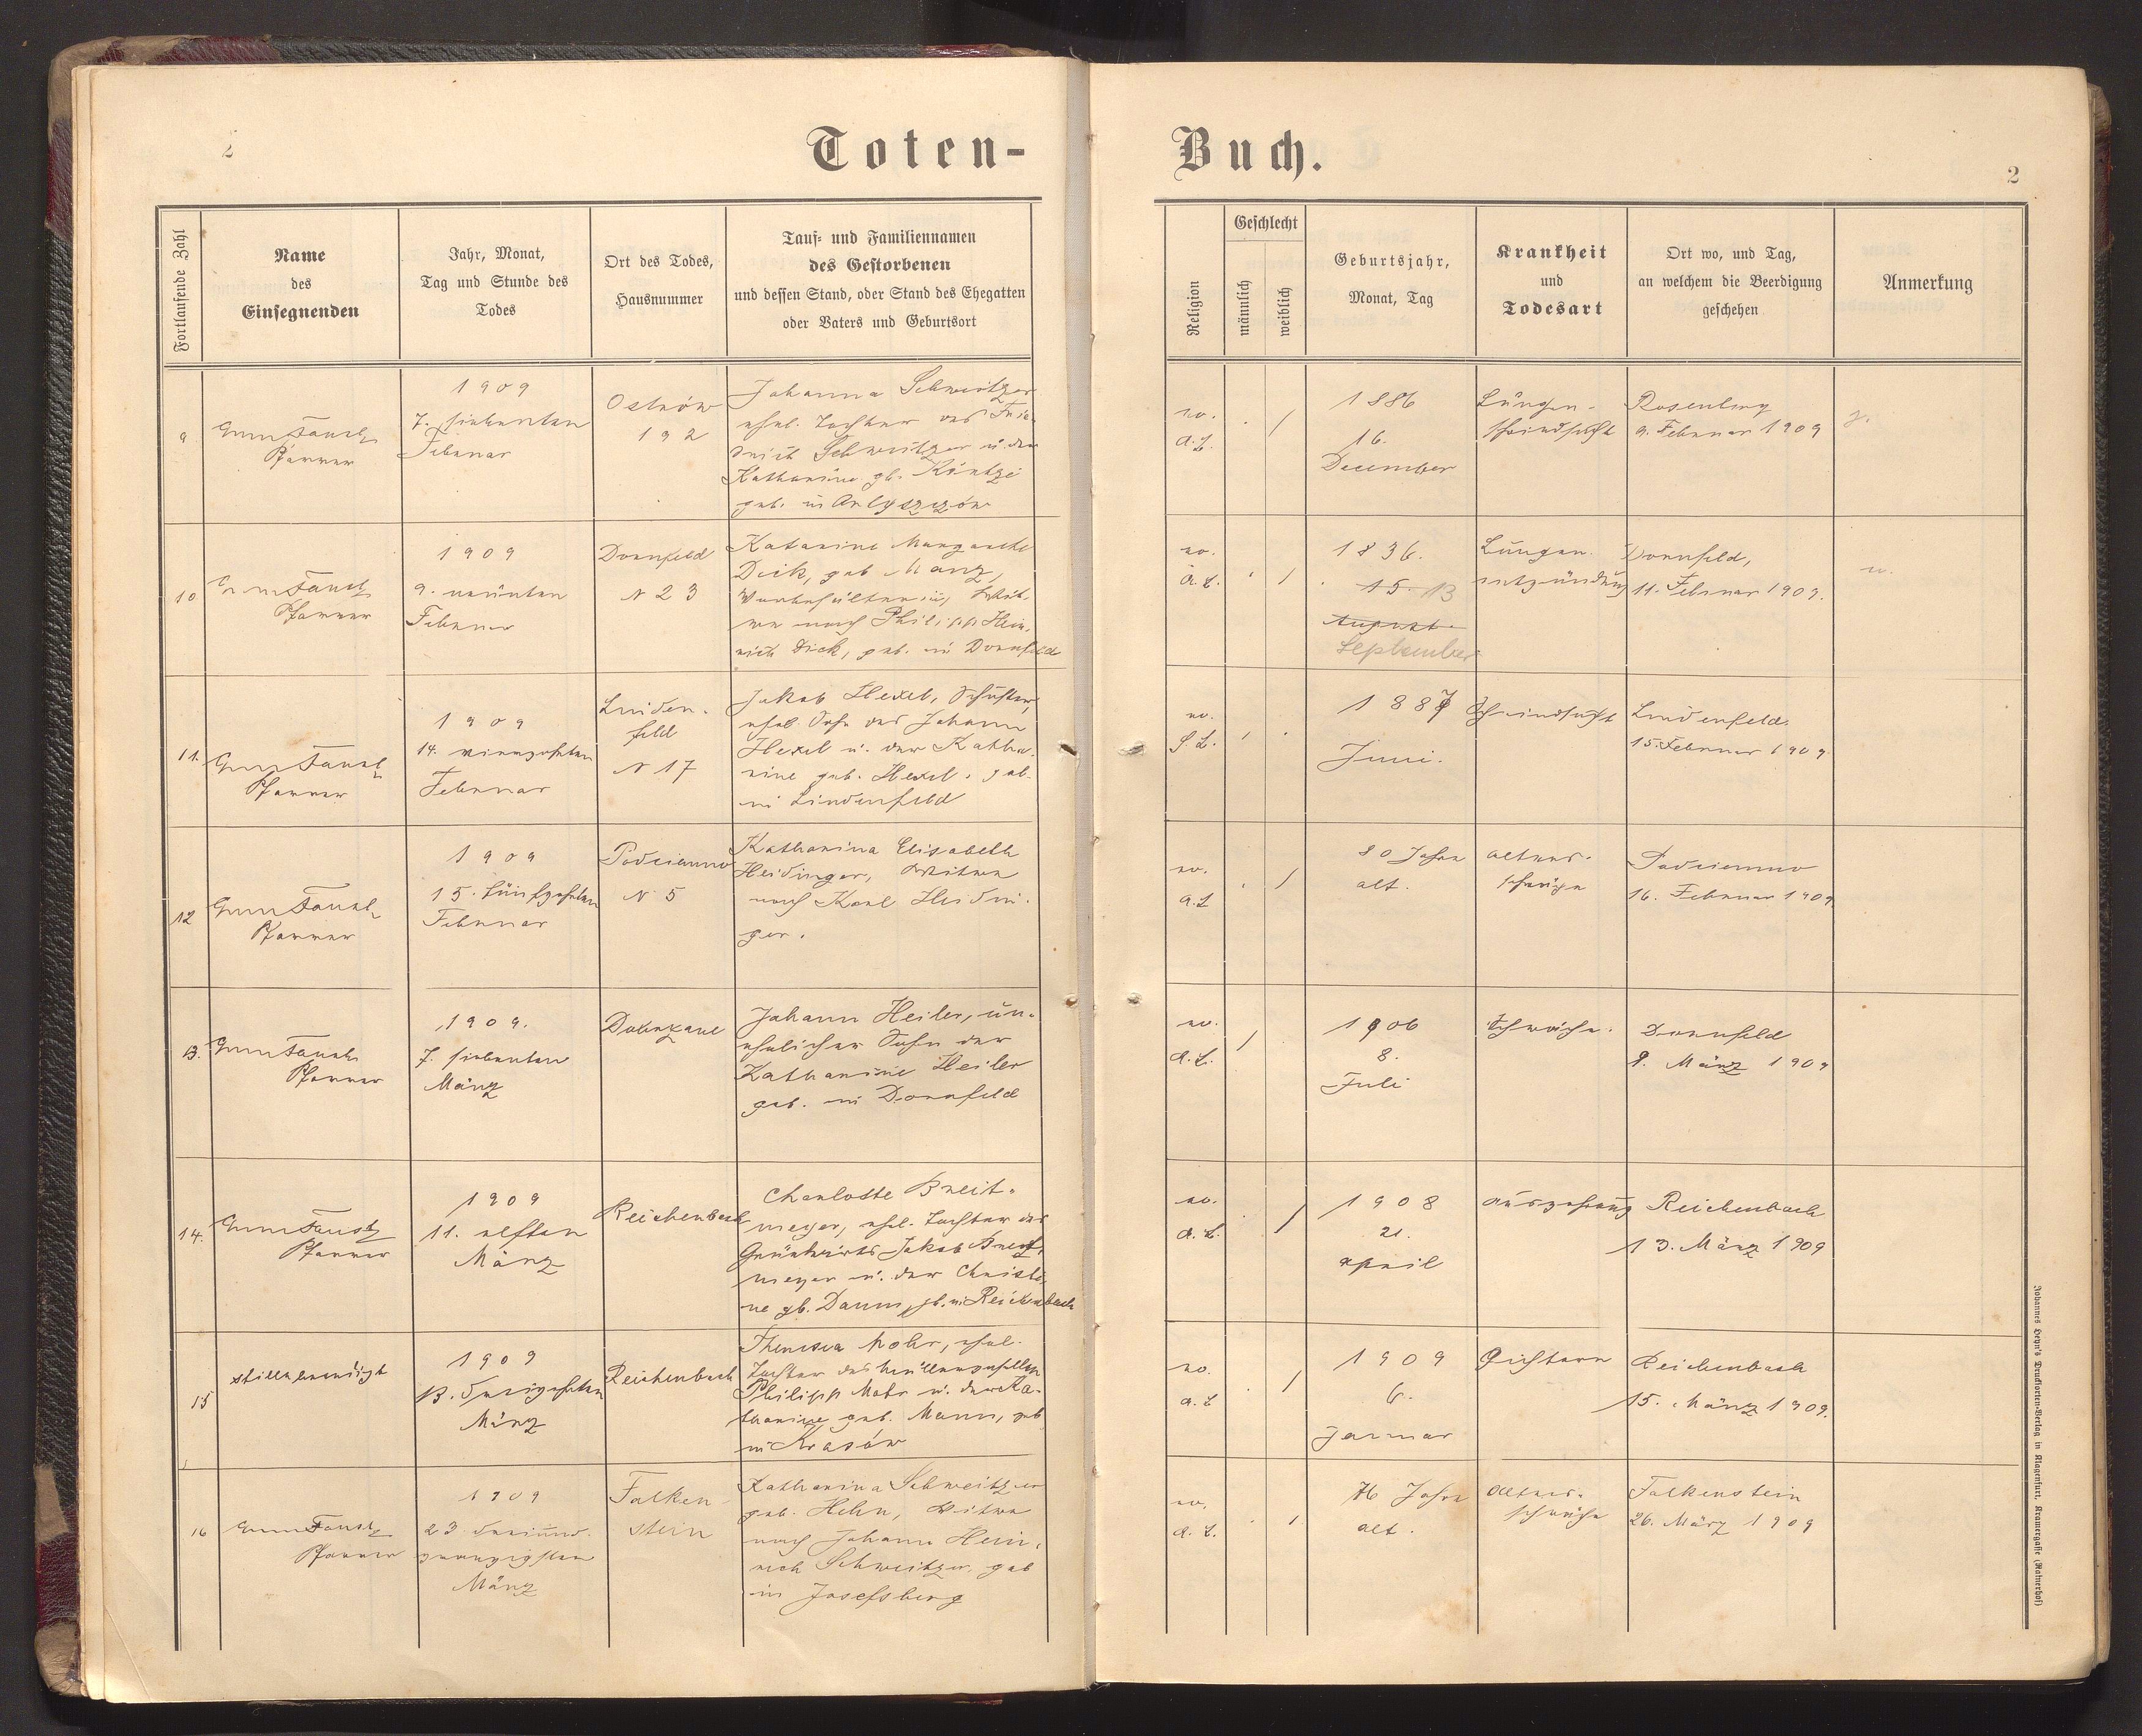 2
Toten-
Buch.
2
Fortlaufende Zahl
Name
des
Einsegnenden
Jahr, Monat,
Tag und Stunde des
Todes
Ort des Todes,
Hausnummer
Tauf- und Familiennamen
des Gestorbenen
und dessen Stand, oder Stand des Ehegatten
oder Vaters und Geburtsort
Religion
Geschlecht
männlich
weiblich
Geburtsjahr,
Monat, Tag
Krankheit
und
Todesart
Ort wo, und Tag,
an welchem die Beerdigung
geschehen
Anmerkung
9
Faust
Pfarrer
1909
7. siebenten
Februar
Ostrów
192
Johanna Schweitzer
ehel. Tochter des Frie-
drich Schweitzer u. der
Katharine gb.
geb. in
ev.
A.L.
1886
16.
December
Lungen-
schwindsucht
Rosenberg
9. Februar 1909
10
Faust
Pfarrer
1909
9. neunten
Februar
Dornfeld
N 23
Katarine Margarethe
Dick, geb Manz,
Wit-
we nach Philipp Hein-
rich Dick, geb. in Dornfeld
ev.
A.L.
1836.
15. 13
August
September
Lungen-
entzündung
Dornfeld,
11. Februar 1909.
11.
Faust
Pfarrer
1909
14. vierzehnten
Februar
Linden-
feld
N 17
Jakob Hexel, Schuster,
ehel. Sohn des Johann
Hexel u. der Katha-
rine geb. Hexel. geb.
in Lindenfeld
ev.
1887
Juni.
Schwindsucht
Lindenfeld.
15. Februar 1909.
12
Faust
Pfarrer
1909
15. fünfzehnten
Februar
Podciemno
N 5
Katharina Elisabeth
Heidinger, Witwe
nach Karl Heidin-
ger.
ev.
A.L
80 Jahre
alt.
Alters-
schwäche
Podciemno
16. Februar 1909.
13.
Faust
Pfarrer
1909.
7. siebenten
März
Dobrzane
Johann Heiler, un-
ehelicher Sohn der
Katharine Heiler
geb. in Dornfeld
ev.
A.L.
1906
8.
Juli
Schwäche.
Dornfeld
9. März 1909
14.
Faust
Pfarrer
1909
11. elften
März
Reichenbach
Charlotte Breit-
meyer, ehel. Tochter des
Grundwirts Jakob Breit-
meyer u. der Christi-
ne gb. Daum, gb. in Reichenbach
ev.
A.L.
1908
21.
April
Auszehrung
Reichenbach
13. März 1909
15
still beerdigt
1909
13. dreizehnten
März
Reichenbach
Theresia Mohr, ehel.
Tochter des Müllergesellen
Philipp Mohr u. der Ka-
tharine geb. Mann, geb
in Krasów
ev.
A.L
1909
6.
Januar
Gichtern
Reichenbach
15. März 1909.
16
Faust
Pfarrer
1909
23. dreiund-
zwanzigsten
März
Falken-
stein
Katharina Schweitzer
geb. Hehn, Witwe
nach Johann Hein-
rich Schweitzer. geb
in Josefsberg
ev.
A.L.
76 Jahre
alt.
Alters-
schwäche
Falkenstein
26. März 1909
Johannes Heyn's Drucksorten-Verlag in Klagenfurt, Kramergasse (Rainerhof)